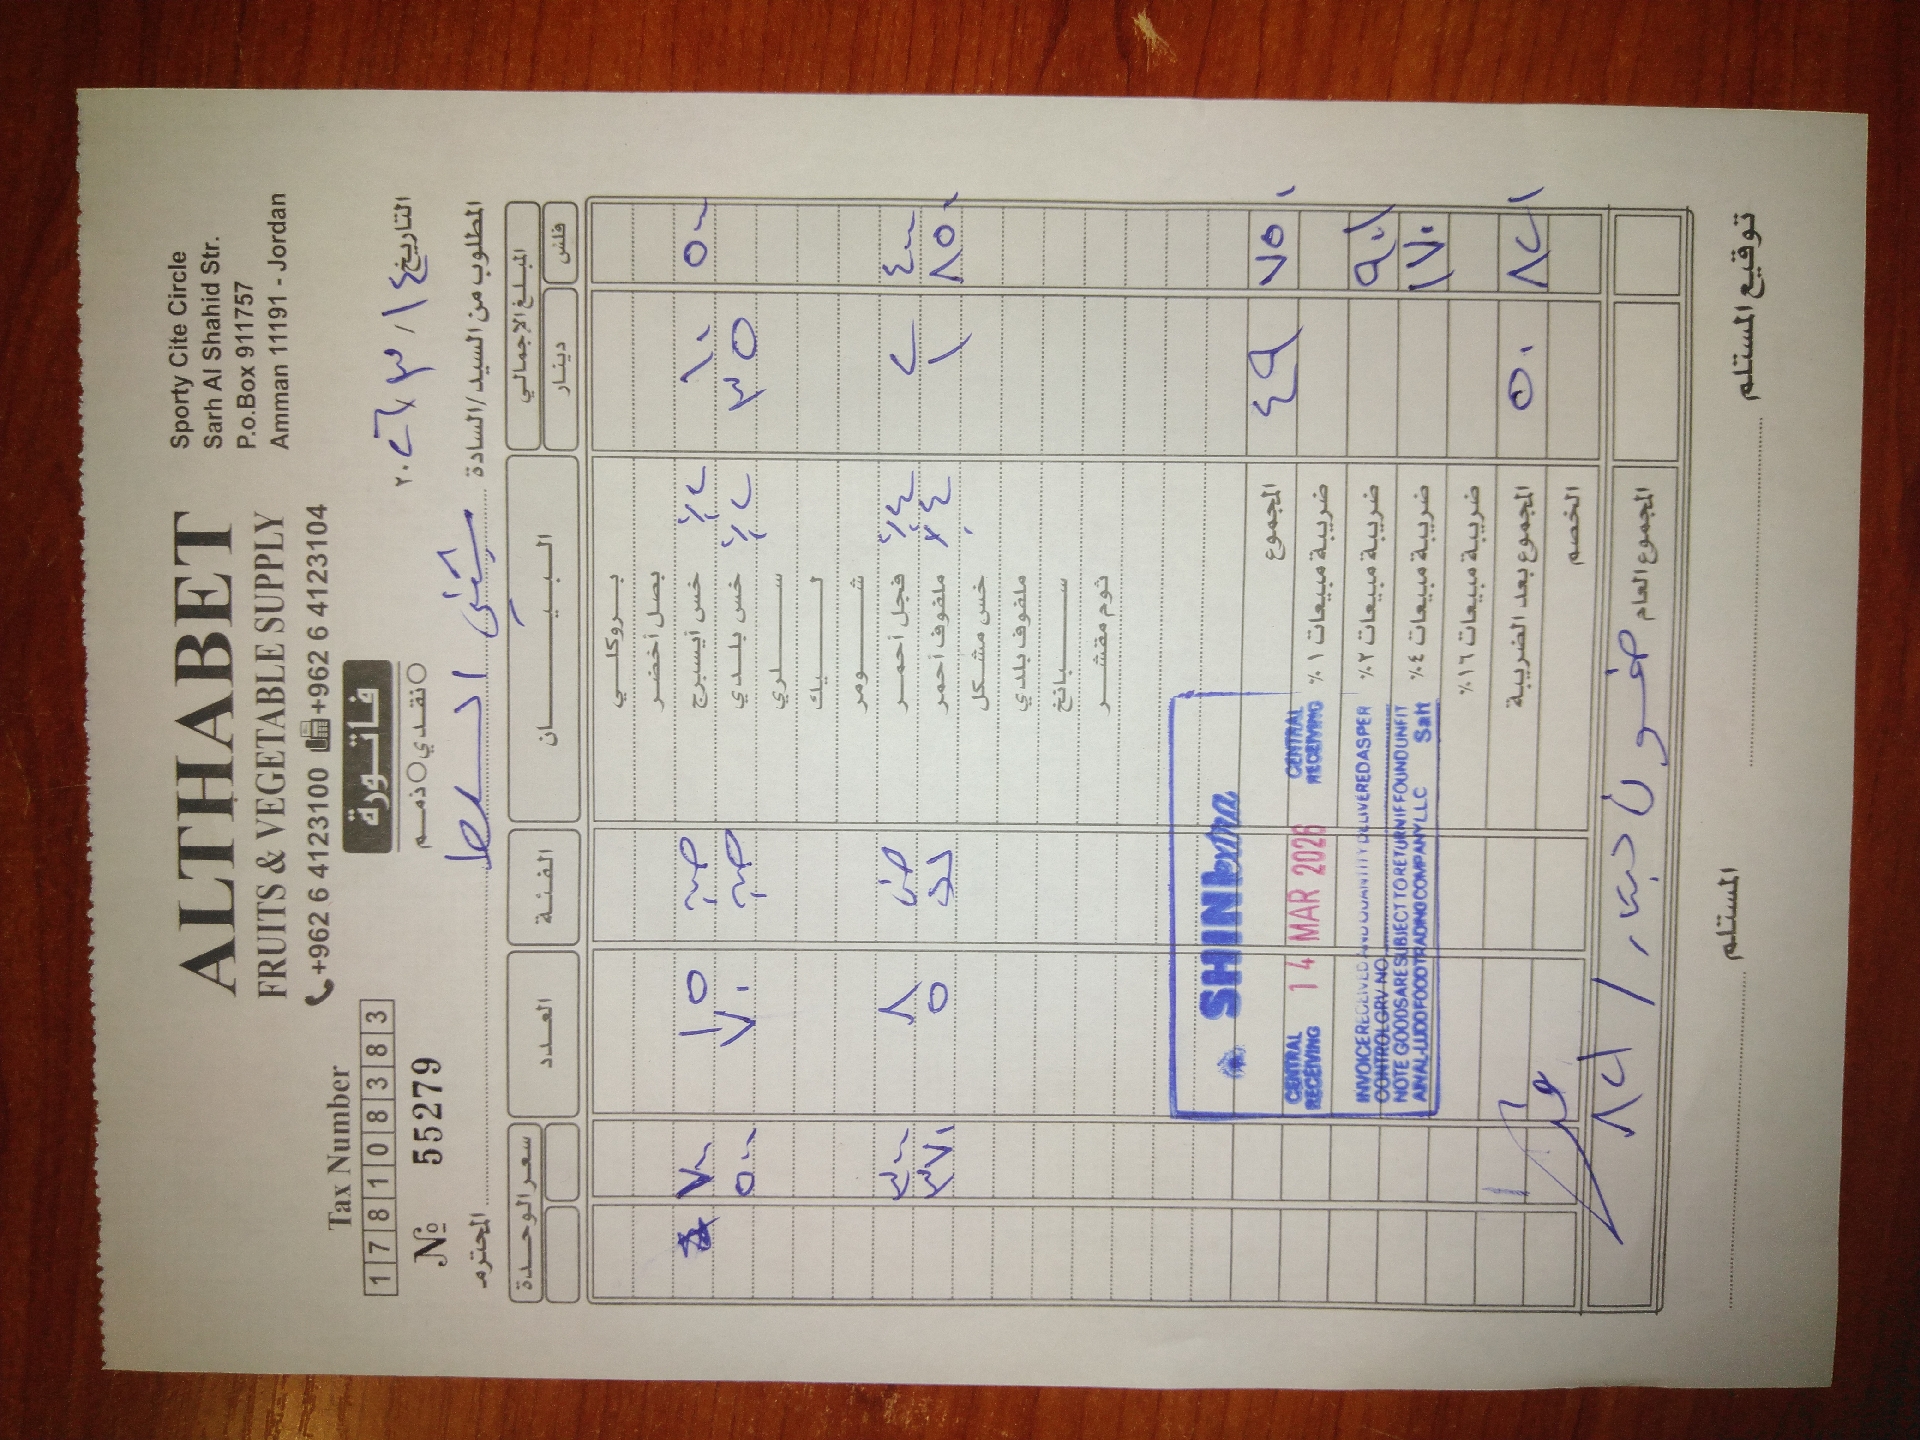 ALTHABET
FRUITS & VEGETABLE SUPPLY
+962 6 4123100 +962 6 4123104
Sporty Cite Circle
Sarh Al Shahid Str.
P.o.Box 911757
Amman 11191 - Jordan
Tax Number
178108383
№ 55279
فاتورة
نقدي ذمم
التاريخ ١٤ / ٣ / ٢٠٢٦
المطلوب من السيد/السادة
المحترم
المبلغ الإجمالي البيان الفئة العدد سعر الوحدة
فلس دينار
بروكلي
بصل أخضر
٥٠٠ ١٠ خس أيسبرج ٪٢ ١٥ ٧٠٠
٣٥ خس بلدي ٪٢ ٧٠ ٥٠٠
سلري
ليك
شومر
٤٠٠ ٢ فجل أحمر ٪٤ ٨ ٣٠٠
٨٥٠ ١ ملفوف أحمر ٪٤ ٥ ٣٧٠
خس مشكل
ملفوف بلدي
سبانخ
ثوم مقشر
٧٥٠ ٤٩ المجموع
ضريبة مبيعات ١٪
٩٠١ ضريبة مبيعات ٢٪
١٧٠ ضريبة مبيعات ٤٪
ضريبة مبيعات ١٦٪
٨٢١ ٥٠ المجموع بعد الضريبة
الخصم
المجموع العام خمسون دينار / ٨٢١
SHINE
CENTRAL RECEIVING 14 MAR 2026 CENTRAL RECEIVING
INVOICE RECEIVED AND QUANTITY DELIVERED AS PER
CONTROL GRV NO.
NOTE GOODS ARE SUBJECT TO RETURN IF FOUND UNFIT
Salt
المستلم
توقيع المستلم